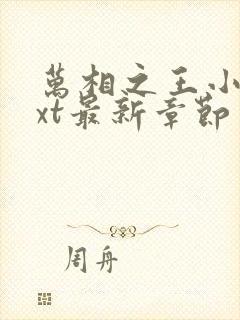 萬相之王小
xt最新章節
周舟